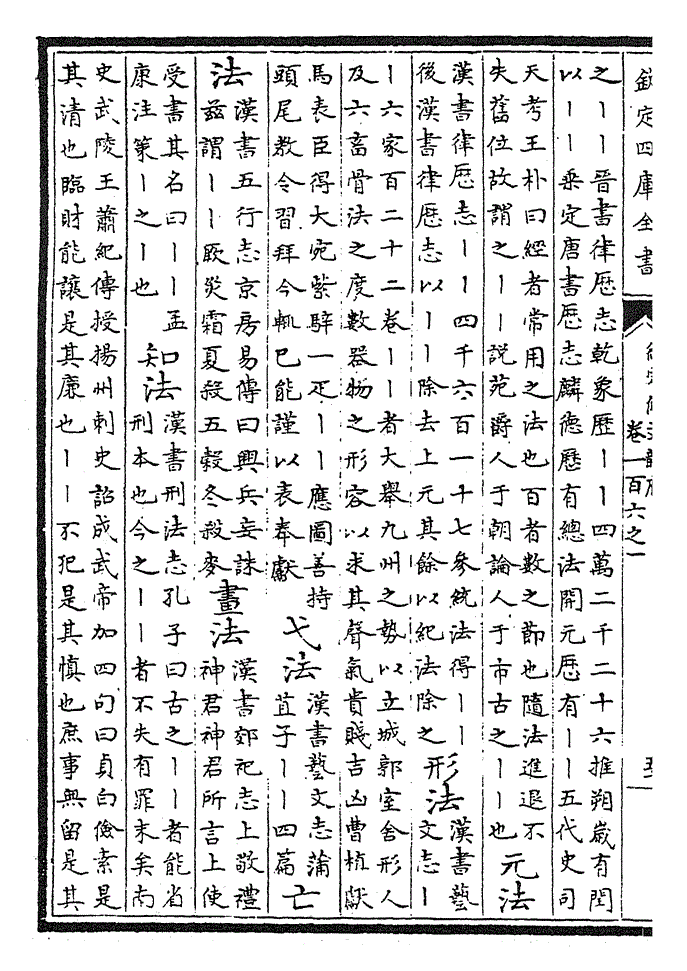 欽定四庫全書
卷一百六之一
五
之丨丨晉書律歷志乾象歷丨丨四萬二千二十六推朔歲有閏
以丨丨乘定唐書歷志麟德歷有總法開元歷有丨丨五代史司
天考王朴曰經者常用之法也百者數之節也隨法進退不
失舊位故謂之丨丨說苑爵人于朝論人于市古之丨丨也
元法
漢書律歷志丨丨四千六百一十七參統法得丨丨
後漢書律歷志以丨丨除去上元其餘以紀法除之
形法
漢書藝
文志丨
丨六家百二十二卷丨丨者大舉九州之勢以立城郭室舍形人
及六畜骨法之度數器物之形容以求其聲氣貴賤吉凶曹植獻
馬表臣得大宛紫騂一疋丨丨應圖善持
頭尾教令習拜今輒已能謹以表奉獻
弋法
漢書藝文志蒲
苴子丨丨四篇
亡
法
漢書五行志京房易傳曰興兵妄誅
茲謂丨丨厥災霜夏殺五穀冬殺麥
畫法
漢書郊祀志上敬禮
神君神君所言上使
受書其名曰丨丨孟
康注策丨之丨也
知法
漢書刑法志孔子曰古之丨丨者能省
刑本也今之丨丨者不失有罪末矣南
史武陵王蕭紀傳授揚州刺史詔成武帝加四句曰貞白儉素是
其清也臨財能讓是其廉也丨丨不犯是其慎也庶事無留是其